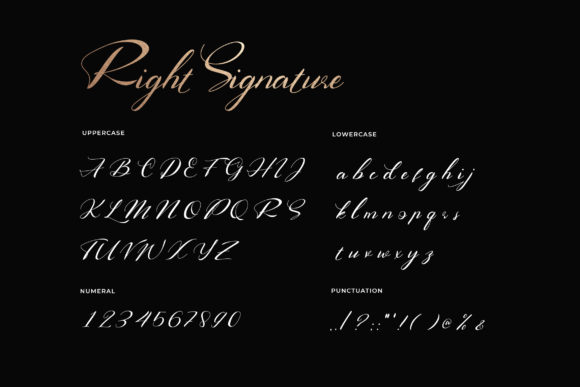 Right Signature
UPPERCASE
A B C D E F G H I J
K L M N O P Q R S
T U V W X Y Z
LOWERCASE
a b c d e f g h i j
k l m n o p q r s
t u v w x y z
NUMERAL
1 2 3 4 5 6 7 8 9 0
PUNCTUATION
. , / ? : ; " ' ! ( ) @ % &